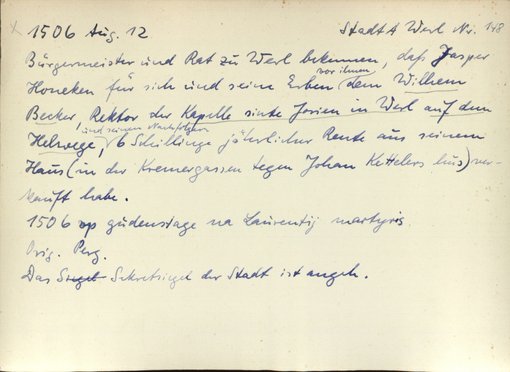 x 1506 Aug. 12 StadtA Werl Nr. 148
Bürgermeister und Rat zu Werl bekennen, daß Jasper
Honeken für sich und seine Erben vor ihnen dem Wilhem
Becker, Rektor der Kapelle sinte Jorien in Werl auf dem
Helwege, und seinen Nachfolgern 6 Schillinge jährlicher Rente aus seinem
Haus (in der Kremergassen tegen Johan Kettelers hus) ver-
kauft habe.
1506 op gudenstage na Laurentij martyris
Orig. Perg.
Das Siegel Sekretsiegel der Stadt ist angeh.